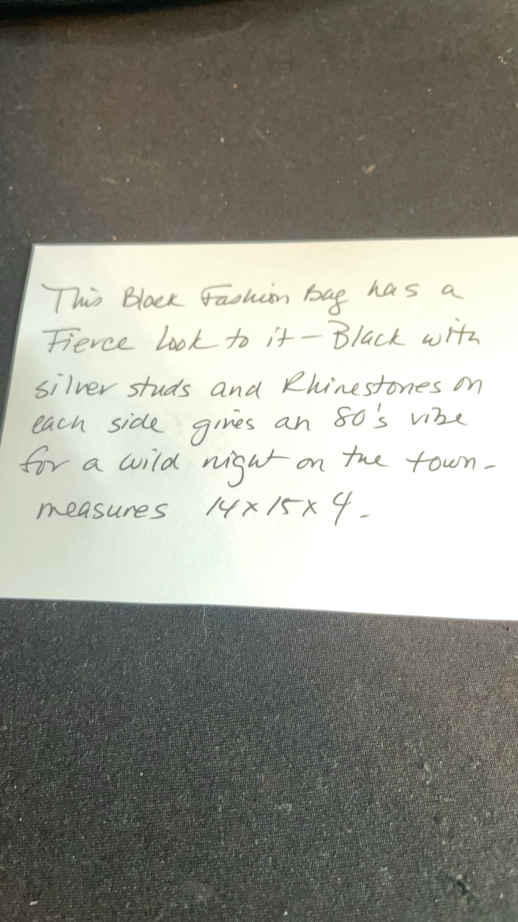 This Black Fashion Bag has a
Fierce Look to it - Black with
silver studs and Rhinestones on
each side gives an 80's vibe
for a wild night on the town -
measures 14 x 15 x 4 -